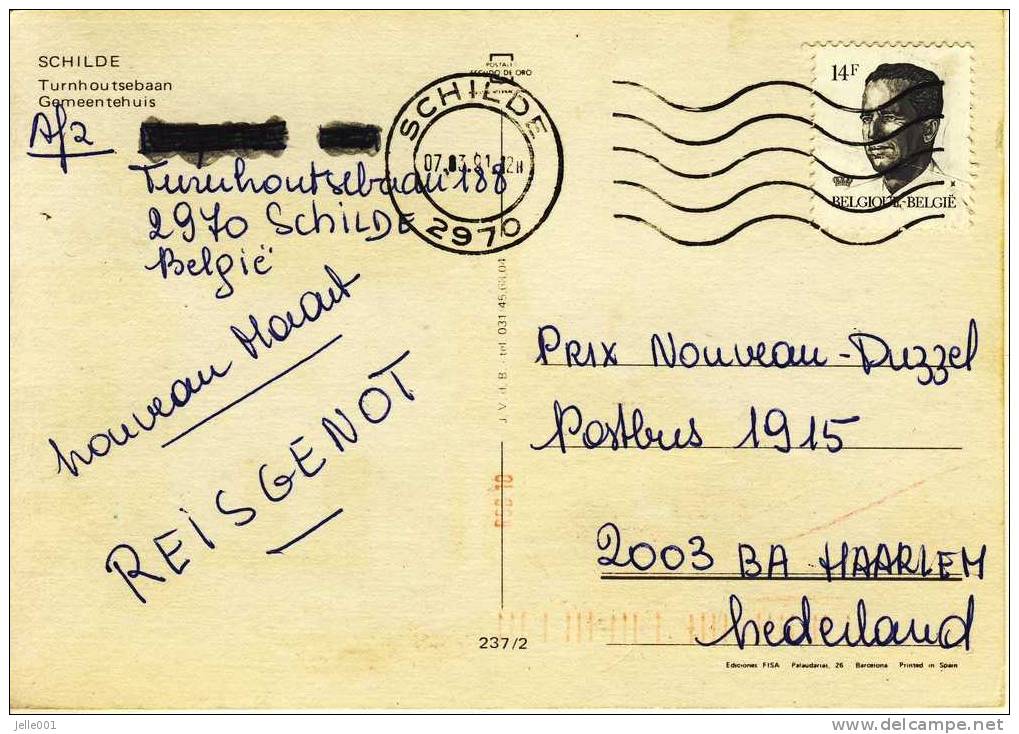 SCHILDE
Turnhoutsebaan
Gemeentehuis
Af2
Turnhoutsebaan 188
2970 SCHILDE
België
nouveau Maart
REISGENOT
SCHILDE
07.03.91-12H
2970
14F
BELGIQUE-BELGIË
J. V. d. B. - tel. 031/45.68.04
PRIX NOUVEAU-Puzzel
Postbus 1915
2003 BA HAARLEM
Nederland
237/2
Ediciones FISA Palaudarias, 26 Barcelona Printed in Spain
jelle001
www.delcampe.net